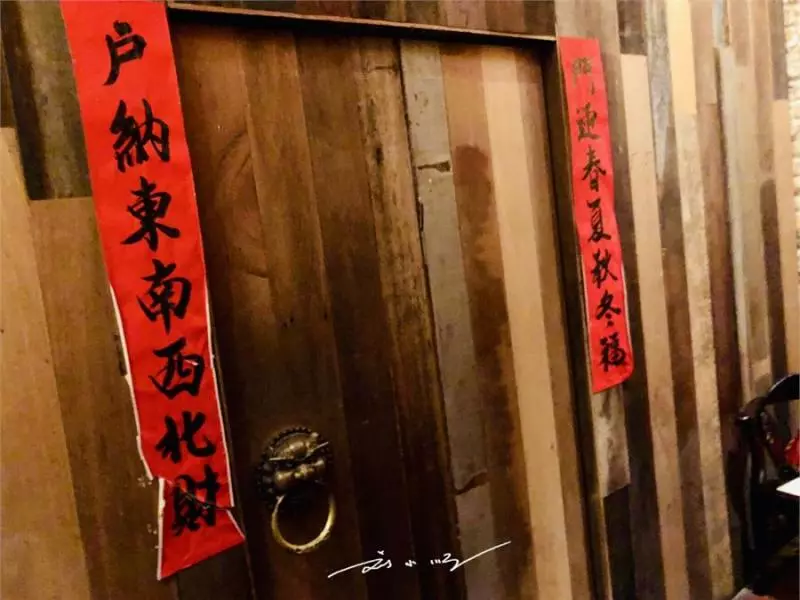 門迎春夏秋冬福
户納東南西北財
刘小顺